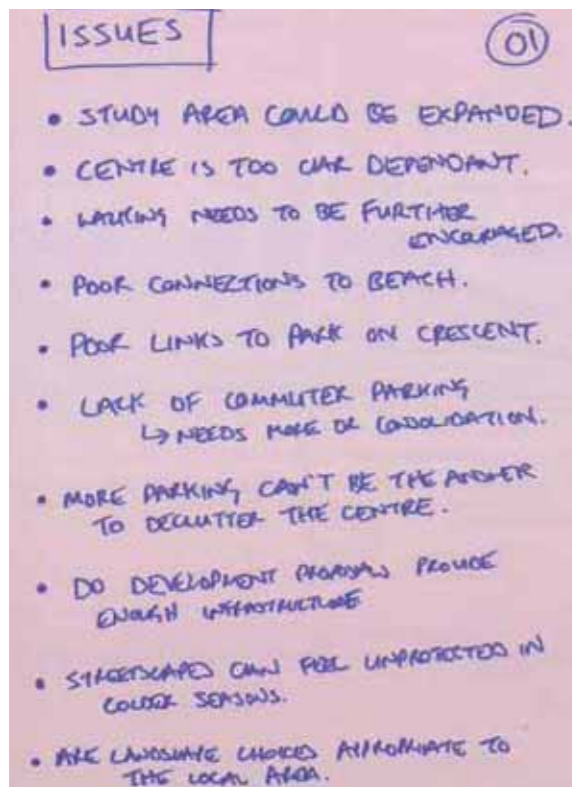 ISSUES
01
• STUDY AREA COULD BE EXPANDED.
• CENTRE IS TOO CAR DEPENDANT.
• WALKING NEEDS TO BE FURTHER
ENCOURAGED.
• POOR CONNECTIONS TO BEACH.
• POOR LINKS TO PARK ON CRESCENT.
• LACK OF COMMUTER PARKING
↳ NEEDS MORE OR CONSOLIDATION.
• MORE PARKING CAN'T BE THE ANSWER
TO DECLUTTER THE CENTRE.
• DO DEVELOPMENT PROPOSALS PROVIDE
ENOUGH INFRASTRUCTURE
• STREETSCAPES CAN FEEL UNPROTECTED IN
COLDER SEASONS.
• ARE LANDSCAPE CHOICES APPROPRIATE TO
THE LOCAL AREA.